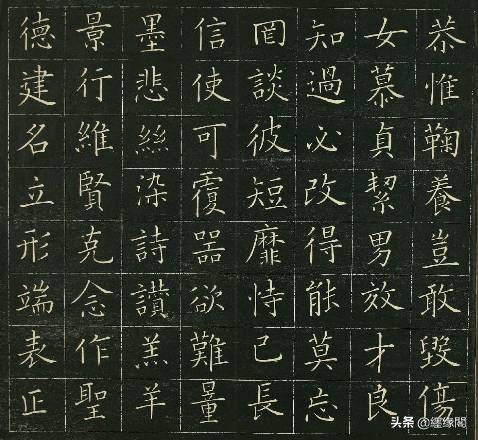 恭惟鞠養豈敢毀傷
女慕貞絜男效才良
知過必改得能莫忘
罔談彼短靡恃己長
信使可覆噐欲難量
墨悲絲染詩讚羔羊
景行維賢克念作聖
德建名立形端表正
头条